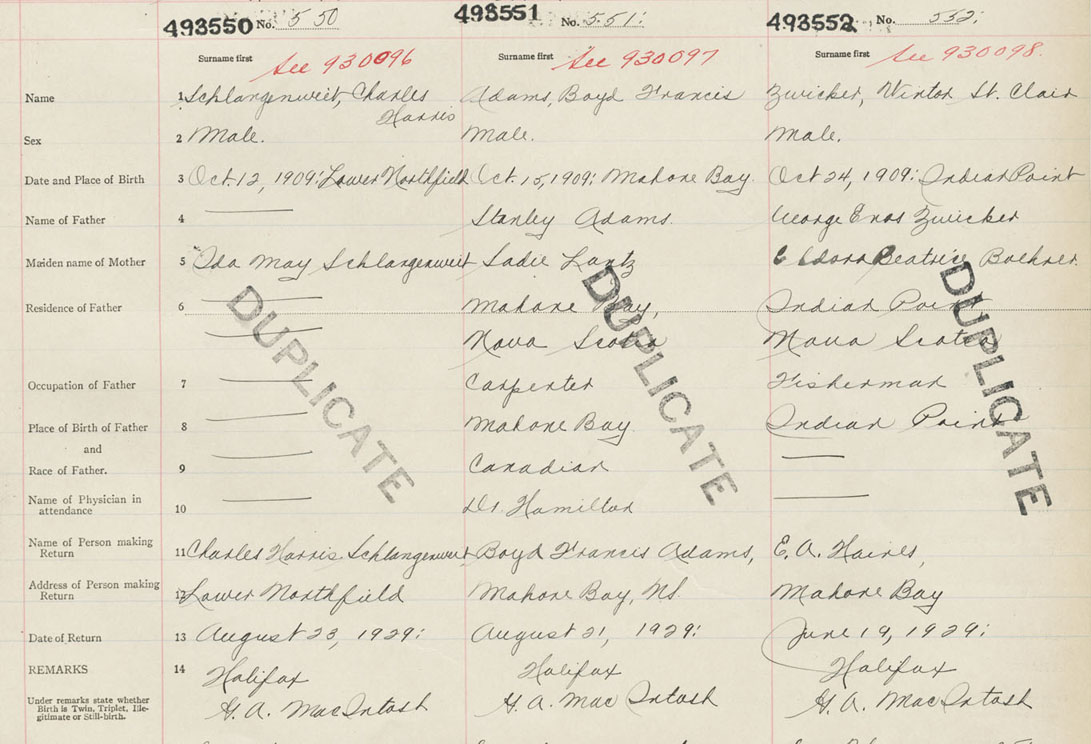 493550 No. 550 493551 No. 551: 493552 No. 552:
Surname first See 930096 Surname first See 930097 Surname first See 930098
Name 1 Schlangenweit, Charles Adams, Boyd Francis Zwicker, Vinton St. Clair
Harris
Sex 2 Male. Male. Male.
Date and Place of Birth 3 Oct. 12, 1909: Lower Northfield Oct. 15, 1909: Mahone Bay. Oct 24, 1909: Indian Point
Name of Father 4 Stanley Adams. George Enos Zwicker
Maiden name of Mother 5 Ida May Schlangenweit Sadie Lantz Eldora Beatrice Boehner.
Residence of Father 6 Mahone Bay, Indian Point
Nova Scotia Nova Scotia
DUPLICATE DUPLICATE DUPLICATE
Occupation of Father 7 Carpenter Fisherman
Place of Birth of Father 8 Mahone Bay Indian Point
and
Race of Father. 9 Canadian
Name of Physician in
attendance 10 Dr. Hamilton
Name of Person making
Return 11 Charles Harris Schlangenweit Boyd Francis Adams, E. A. Haines,
Address of Person making
Return 12 Lower Northfield Mahone Bay, NS. Mahone Bay
Date of Return 13 August 23, 1929: August 21, 1929: June 19, 1929:
REMARKS 14 Halifax Halifax Halifax
Under remarks state whether
Birth is Twin, Triplet, Ille-
gitimate or Still-birth.
H. A. MacIntosh H. A. MacIntosh H. A. MacIntosh